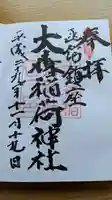 奉拝
正面鎮座
大森稲荷神社
平成二九年十一月十九日